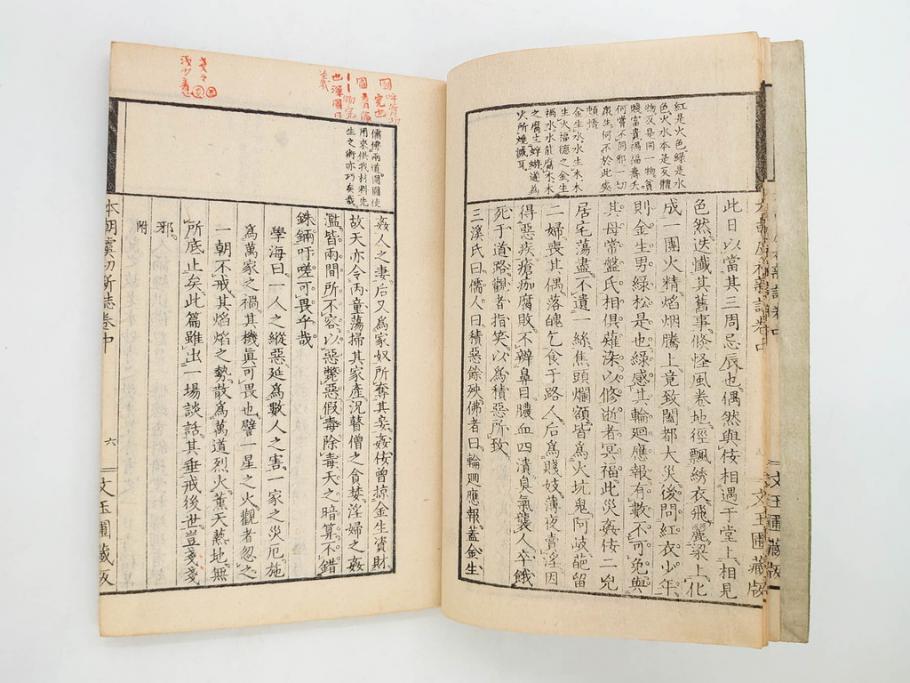 本朝虞初新誌卷中
文玉圃藏版
紅是火色綠是水
色火水本是反體
物反是同一物貧
賤富貴禍福壽夭
何嘗不同那一切
衆生何不於此處
頓悟
金生水水生木木
生火猛德之金生
禍水水能腐木木
之腐生蜉蝣遂為
火所燒滅耳
此日以當其三周忌辰也偶然與侒相遇于堂上相見
色然迭懺其舊事倏怪風卷地徑飄綉衣飛麗梁上化
成一團火精焰烟騰上竟致闔都大災後問紅衣少年
則金生男綠松是也綠感其輪迴應報有數不可免與
其母常盤氏相俱薙染以修逝者冥福此災姦侒二兒
居宅蕩盡不遺一絲焦頭爛額皆為火坑鬼阿岐葩留
二婦喪其偶落魄乞食于路人后為賤妓薄夜賣淫因
得惡疾瘡痂腐敗不辨鼻目膿血四潰臭氣襲人卒餓
死于道路觀者指笑以為積惡所致
三溪氏曰儒人曰積惡餘殃佛者曰輪迴應報蓋金生
儒佛兩道圇圇使
用來供我材料先
生之術亦巧矣哉
姦人之妻后又為家奴所奪其妾姦侒曾掠金生資財
故天亦令丙童蕩掃其家產況瞽僧之貪婪淫婦之姦
濫皆兩間所不容以惡獘惡假毒除毒天之暗算不錯
銖錙吁嗟可畏乎哉
學海曰一人之縱惡延為數人之害一家之災厄施
為萬家之禍其機眞可畏也譬一星之火觀者忽之
一朝不戒其焰焰之勢散為萬道烈火薰天爇地無
所底止矣此篇雖出一場談話其垂戒後世豈戔戔
邪
附
本朝虞初新誌卷中
六
文玉圃藏版